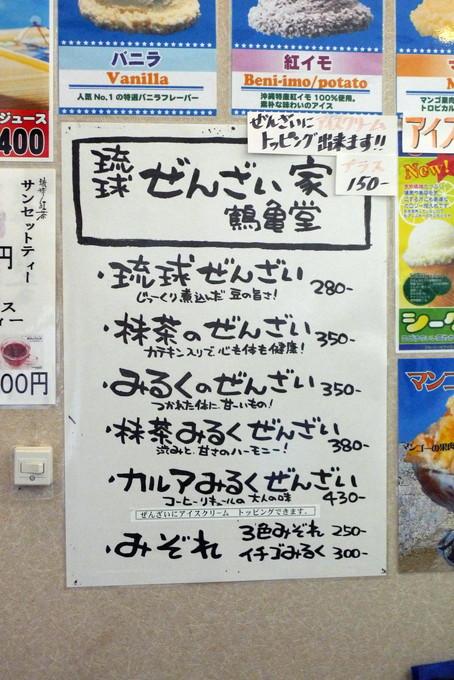 バニラ
Vanilla
人気No.1の特選バニラフレーバー
紅イモ
Beni-imo/potato
沖縄特産紅イモ100%使用。
素朴な味わいのアイス
マンゴ果肉
トロピカル
ジュース
400
サンセットティー
円
ス
ィー
00円
ぜんざいにアイスクリーム
トッピング出来ます!!
プラス
150-
琉球ぜんざい家
鶴亀堂
・琉球ぜんざい 280-
じっくり煮込んだ豆の旨さ!
・抹茶のぜんざい 350-
カテキン入りで、心も体も健康!
・みるくのぜんざい 350-
つかれた体に甘ーいもの!
・抹茶みるくぜんざい 380-
渋みと甘さのハーモニー!
・カルアみるくぜんざい 430-
コーヒーリキュールの大人の味
ぜんざいにアイスクリーム トッピングできます。
・みぞれ 3色みぞれ 250-
イチゴみるく 300-
アイス
New!
シーク
マンゴ
マンゴーの果肉